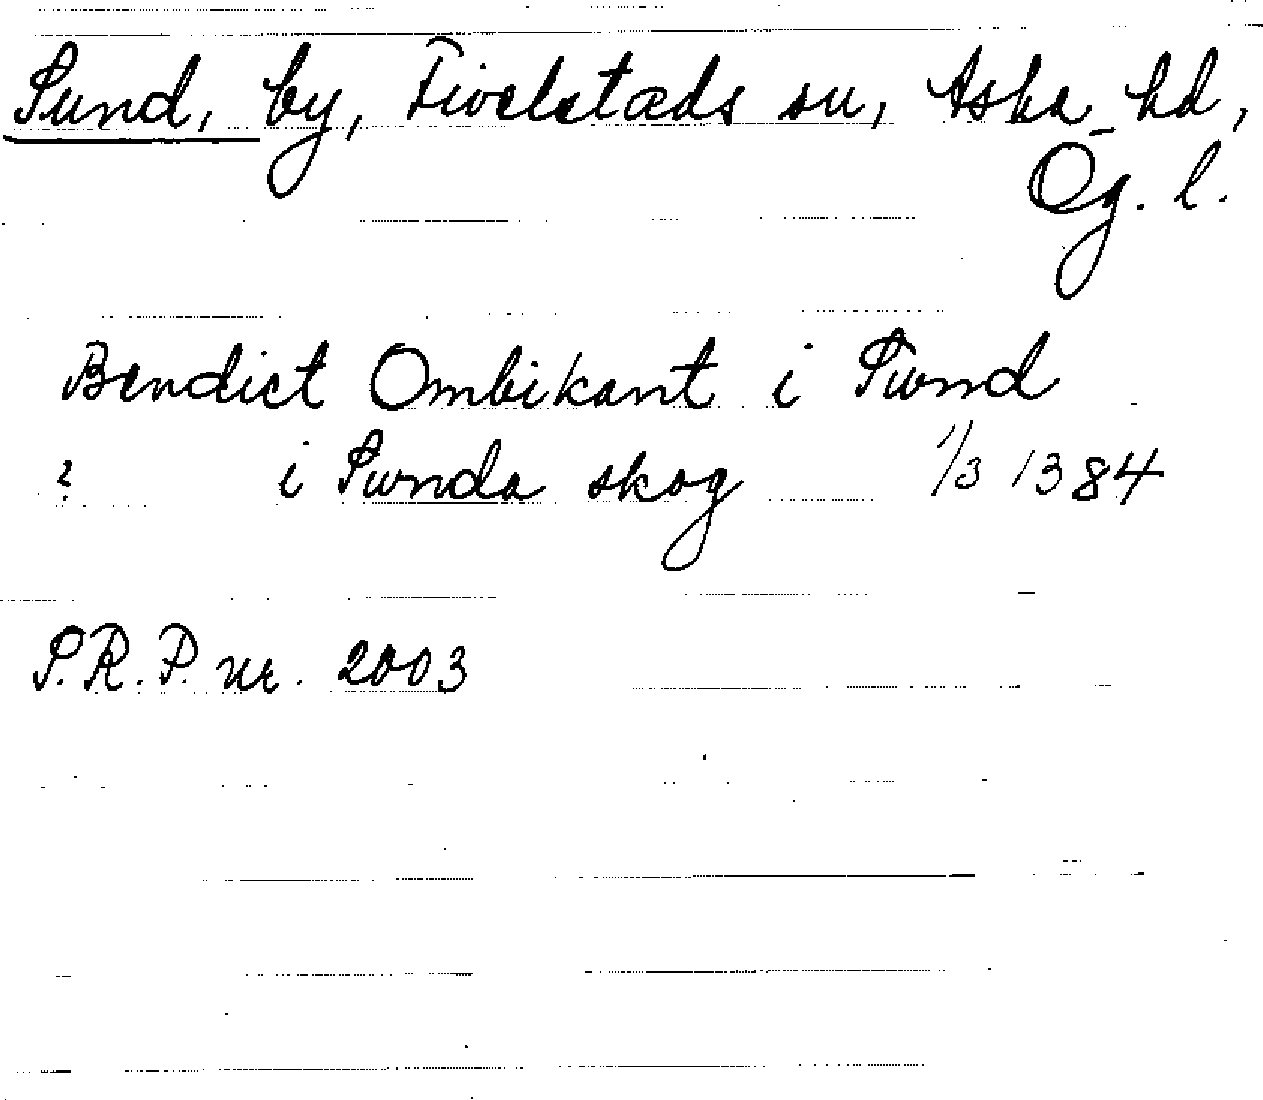 Sund, by, Fivelstads sn, Aska hd,
Ög. l.
Bendict Ombikant i Swnd
? i Swnda skog 1/3 1384
S.R.P. nr. 2003